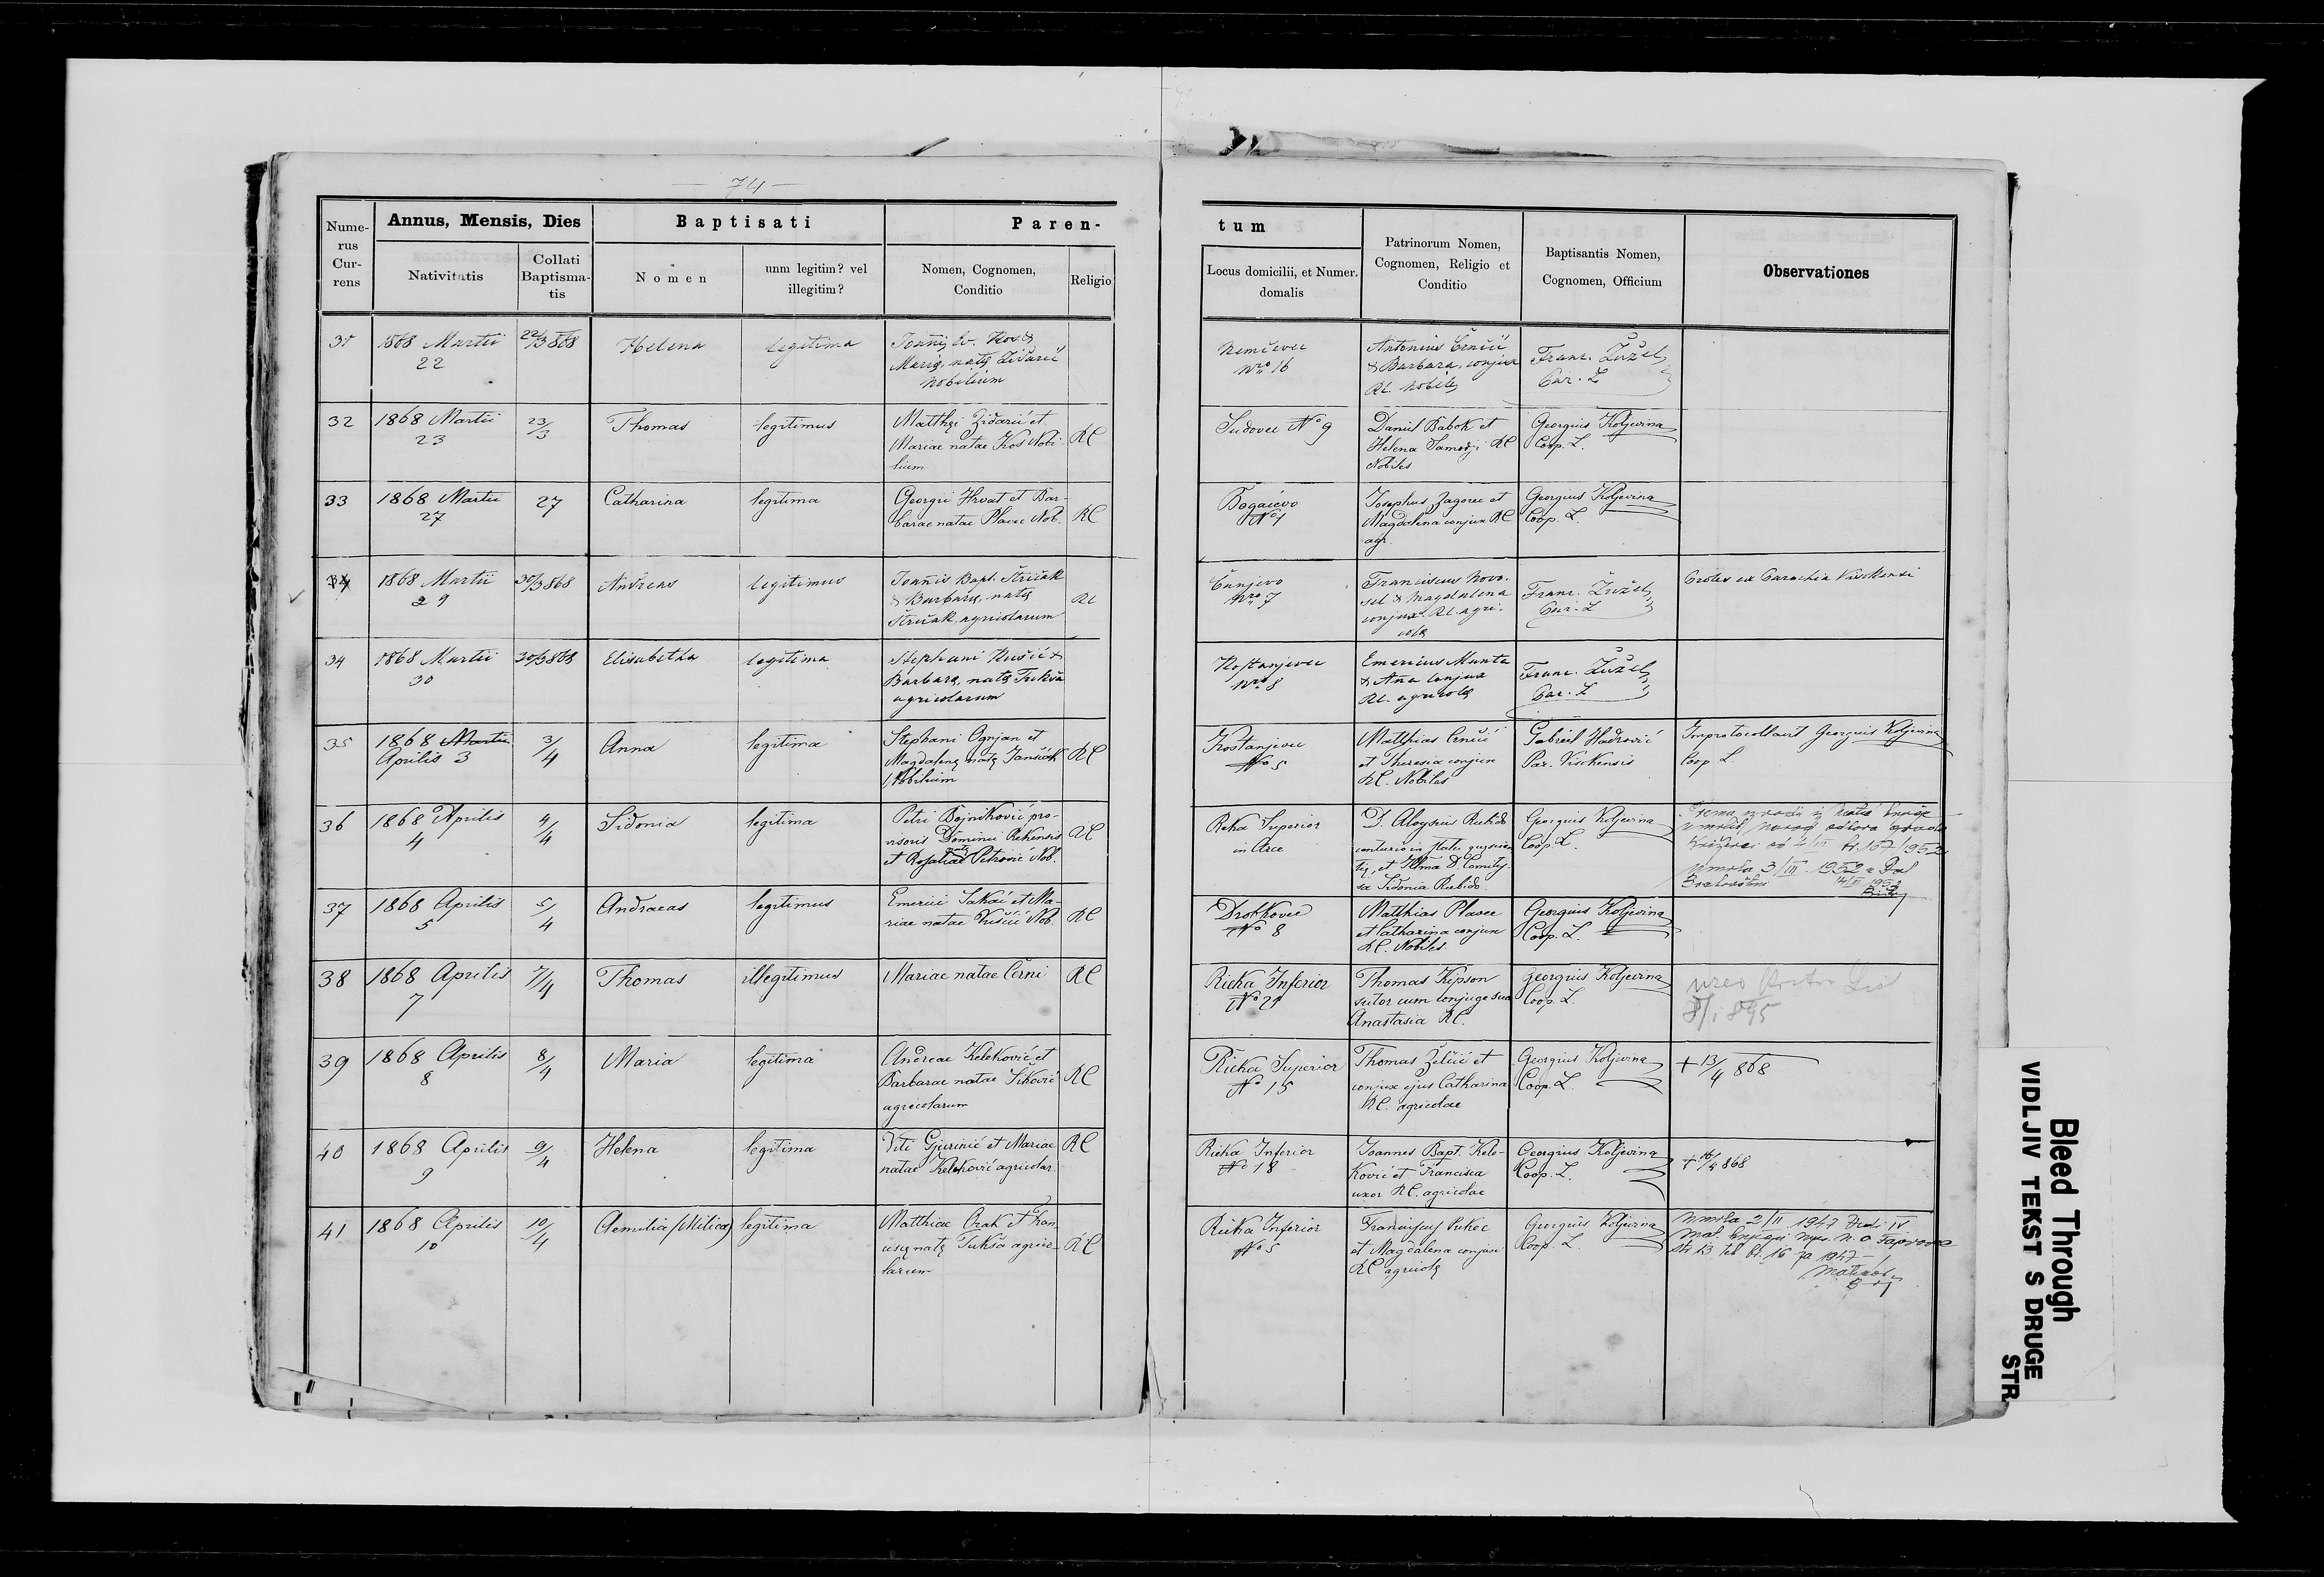 — 74 —
Nume-
rus
Cur-
rens
Annus, Mensis, Dies
Nativitatis
Collati
Baptisma-
tis
Baptisati
Nomen
unm legitim? vel
illegitim?
Paren-
Nomen, Cognomen,
Conditio
Religio
tum
Locus domicilii, et Numer.
domalis
Patrinorum Nomen,
Cognomen, Religio et
Conditio
Baptisantis Nomen,
Cognomen, Officium
Observationes
31
1868 Martii
22
22/3 868
Helena
legitima
Joannis Ev. Kos &
Marię, natę Židarić
Nobilium
Nemčevec
Nro 16
Antonius Črnčić
& Barbara, conjux
RC. Nobiles
Franc. Žužel
Par. L
32
1868 Martii
23
23/3
Thomas
legitimus
Matthęi Židarić et
Mariae natae Kos Nobi-
lium
RC
Sudovec No 9
Daniel Babok et
Helena RC
Nobiles
Georgius Koljevina
Coop. L.
33
1868 Martii
27
27
Catharina
legitima
Georgii Hrvat et Bar-
barae natae Plavec Nob.
RC
Bogačevo
No 1
Josephus Zagorec et
Magdalena conjux RC
agr.
Georgius Koljevina
Coop. L.
34
1868 Martii
29
30/3 868
Andreas
legitimus
Joannis Bapt. Štričak
& Barbarę, natę
Štričak, agricolarum
RC
Čanjevo
Nro 7
Franciscus Novo-
sel & Magdalena
conjux RC. agri-
colę
Franc. Žužel
Par. L
Proles ex Parochia Visokensi
34
1868 Martii
30
30/3 868
Elisabetha
legitima
Stephani Kušić &
Barbarę, natę
agricolarum
Kostanjevec
Nro 8
Emericus Munta
& Ana conjux
RC. agricolę
Franc. Žužel
Par. L
35
1868 Martii
Aprilis 3
3/4
Anna
legitima
Stephani Ognjan et
Magdalenę natę Jančiek
Nobilium
RC
Kostanjevec
No 5
Matthias Črnčić
et Theresia conjux
RC. Nobiles
Gabriel Hadrović
Par. Visokensis
Improtocollavit Georgius Koljevina
Coop L.
36
1868 Aprilis
4
4/4
Sidonia
legitima
Petri Bojniković pro-
visoris Dominii Rekensis
et Rosaliae natę Petrović Nob.
RC
Reka Superior
in Arce
D. Aloysius Rubido
centurio in statu quiescen-
ti, et D. Comitis-
sa Sidonia Rubido
Georgius Koljevina
Coop. L.
Prema izvodu iz matice knjige
umrlih, Narod odbora grada
Križevci od 4/III br. 167/1952
umrla 3/III 1952
14/III 1952
37
1868 Aprilis
5
5/4
Andraeas
legitimus
Emerici Sakač et Ma-
riae natae Kušić Nob.
RC
Drobkovec
No 8
Matthias Plavec
et Catharina conjux
RC. Nobiles.
Georgius Koljevina
Coop. L.
38
1868 Aprilis
7
7/4
Thomas
illegitimus
Mariae natae Černi
RC
Rieka Inferior
No 21
Thomas Kipson
sutor cum conjuge sua
Anastasia RC.
Georgius Koljevina
Coop. L.
8/1 895
39
1868 Aprilis
8
8/4
Maria
legitima
Andreae Keleković et
Barbarae natae Siković
agricolarum
RC
Rieka Superior
No 15
Thomas Želčić et
conjux ejus Catharina
RC. agricolae
Georgius Koljevina
Coop. L.
+ 13/4 868
40
1868 Aprilis
9
9/4
Helena
legitima
Viti Gjurinić et Mariae
natae Keleković agricolar.
RC
Rieka Inferior
No 18
Joannes Bapt. Kele-
ković et Francisca
uxor RC. agricolae
Georgius Koljevina
Coop. L.
+ 16/4 868
41
1868 Aprilis
10
10/4
Aemilia (Milica)
legitima
Matthiae Orak et Fran-
ciscę natę Tuksa agrico-
larum
RC
Rieka Inferior
No 5
Franciscus Pukec
et Magdalena conjux
RC agricolę
Georgius Koljevina
Coop. L.
Umrla 2/II 1947
mat. knjizi mjes. n. o
str 13 tek br. 16 za 1947 –
Matičar
Bleed Through
VIDLJIV TEKST S DRUGE
STR